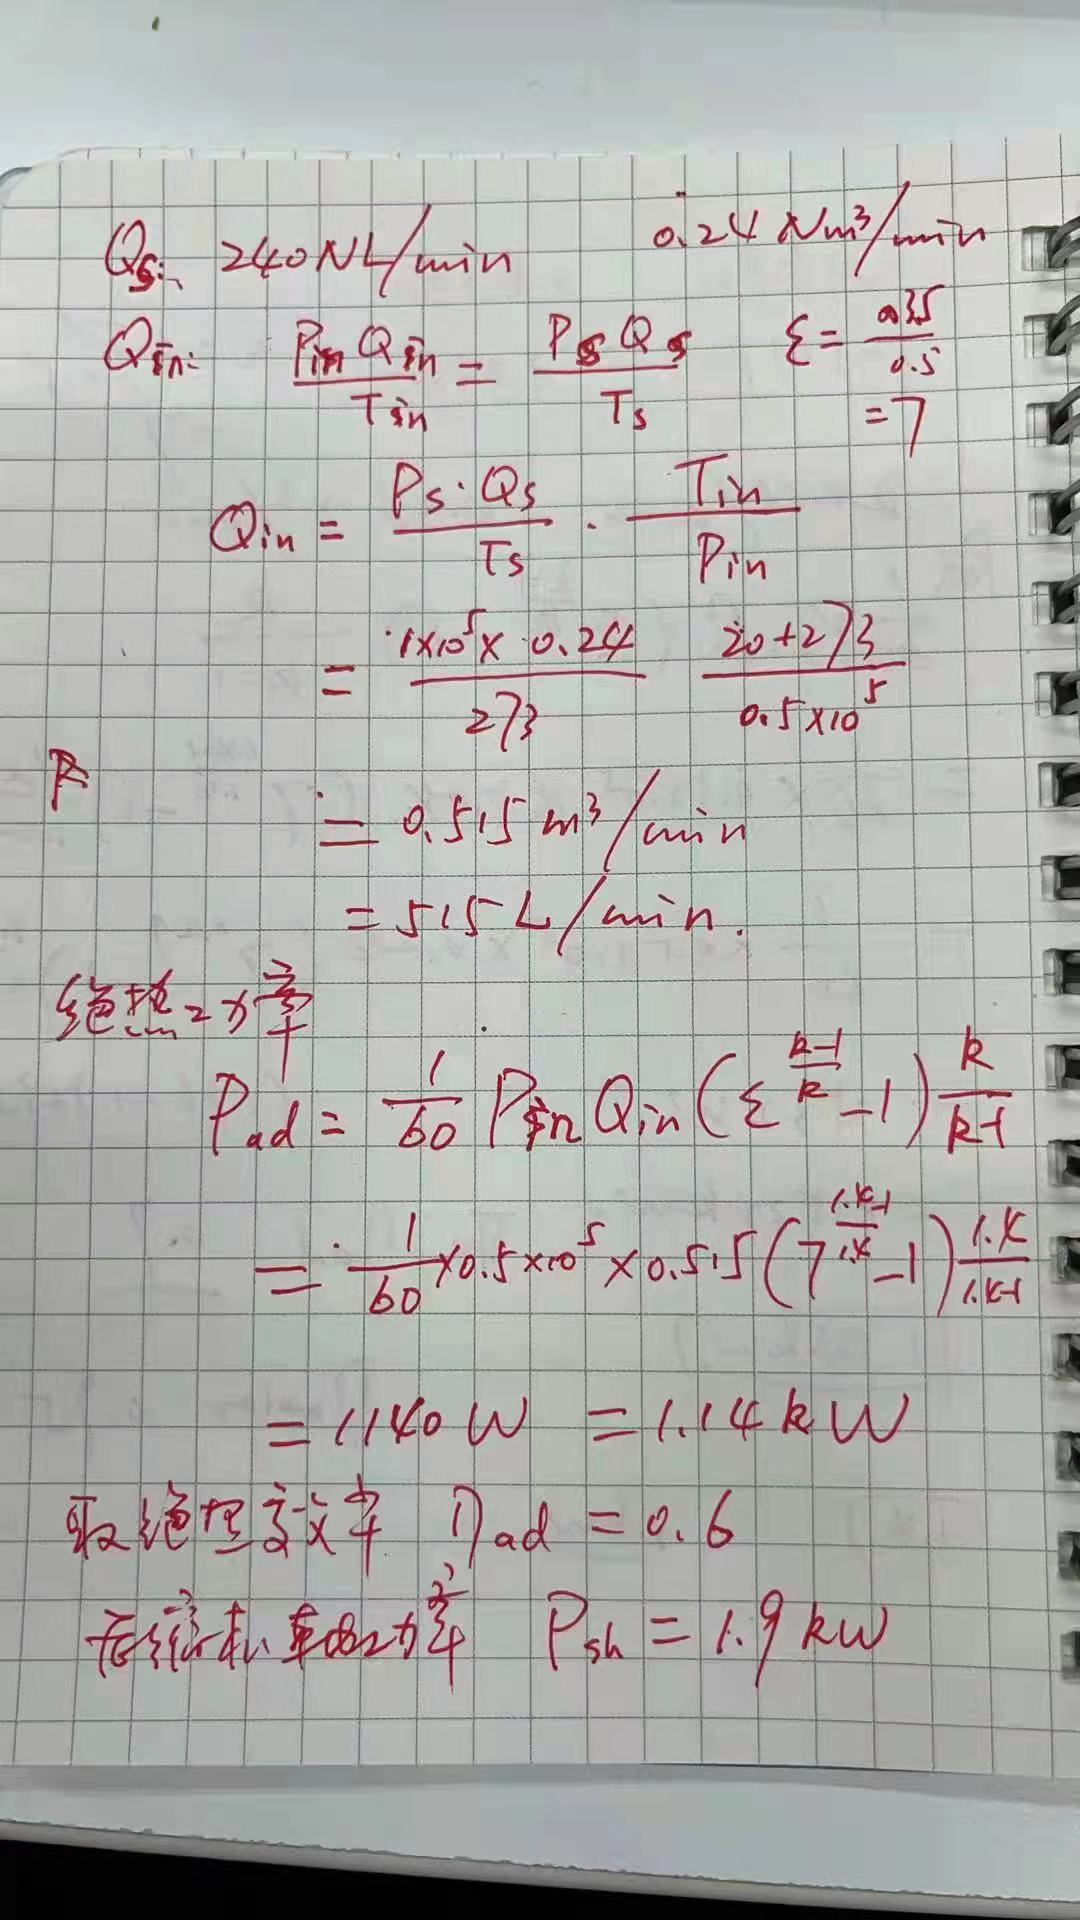 Qs: 240NL/min 0.24 Nm³/min
Qin: PinQin/Tin = PsQs/Ts ε = 0.35/0.5
= 7
Qin = Ps·Qs/Ts · Tin/Pin
= 1×10⁵×0.24/273 20+273/0.5×10⁵
= 0.515 m³/min
= 515 L/min.
绝热功率
Pad = 1/60 Pin Qin (ε^(k-1/k) -1) k/k-1
= 1/60 ×0.5×10⁵×0.515 (7^(1.4-1/1.4) -1) 1.4/1.4-1
= 1140 W = 1.14 kW
取绝热效率 ηad = 0.6
压缩机轴功率 Psh = 1.9 kW